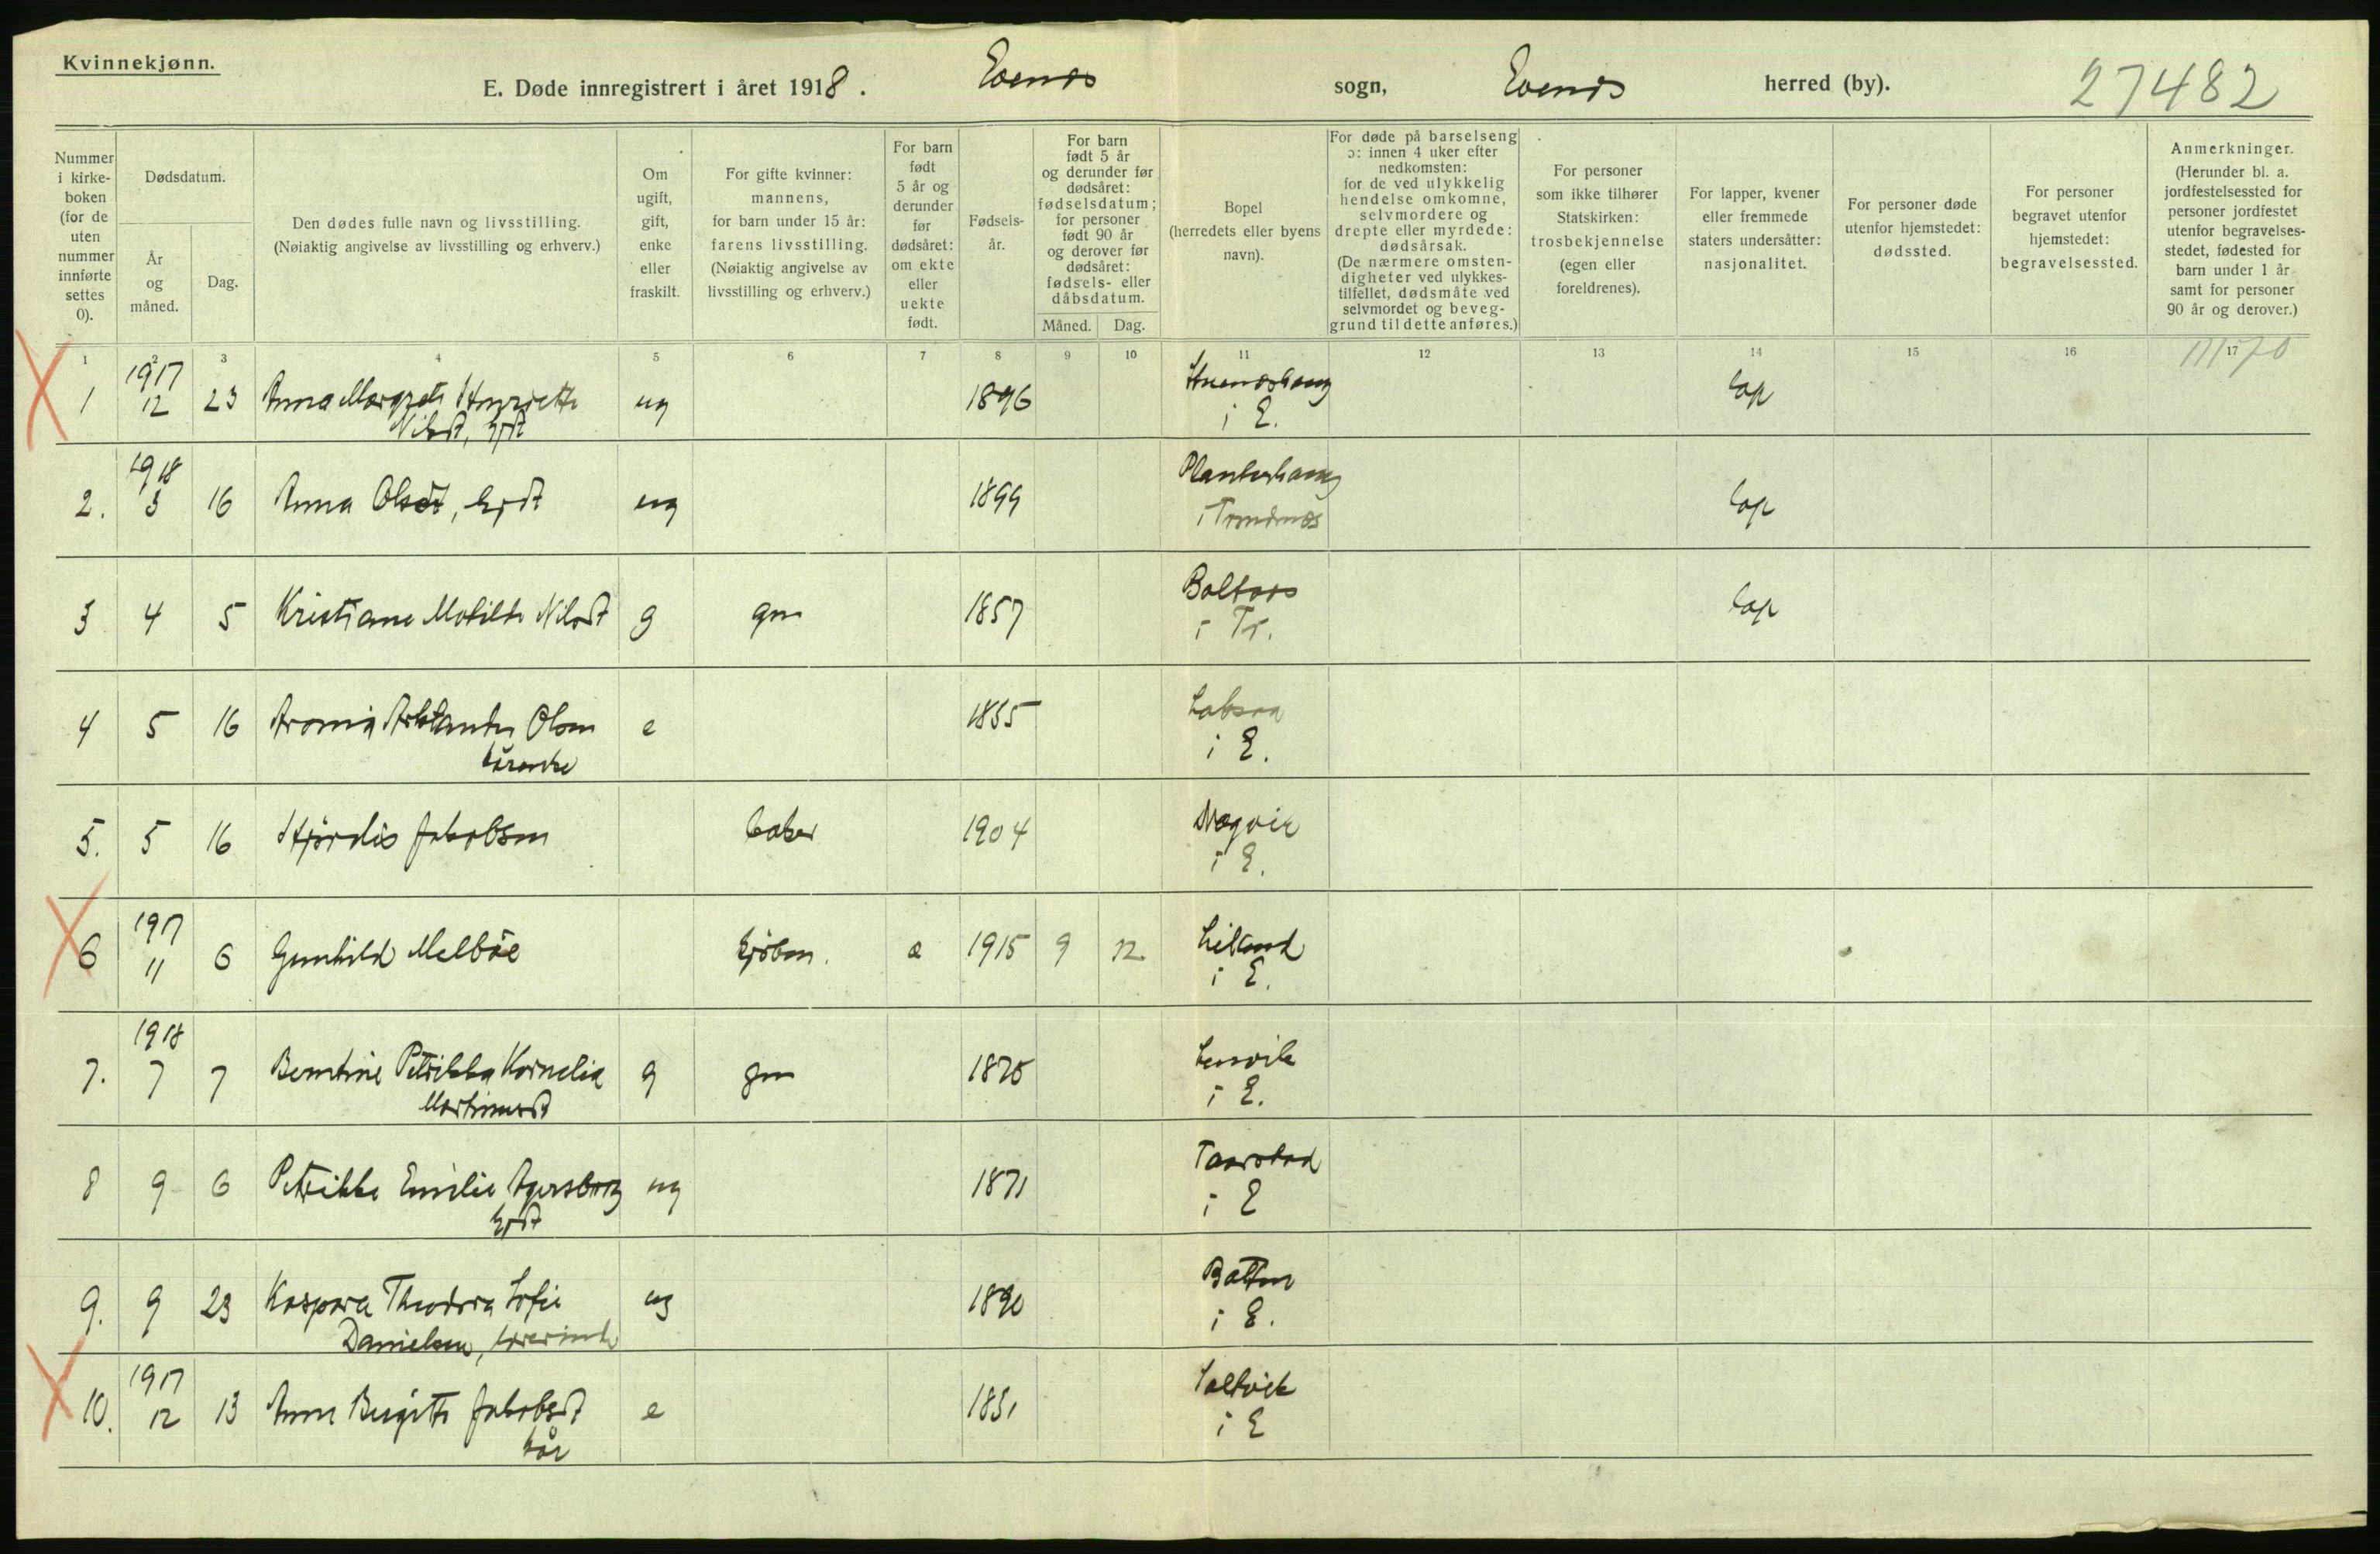 Kvinnekjønn.
E. Døde innregistrert i året 1918. Evenes sogn, Evenes herred (by). 27482
Nummer i kirke-boken (for de uten nummer innførte settes 0).
Dødsdatum.
År og måned.
Dag.
Den dødes fulle navn og livsstilling.
(Nøiaktig angivelse av livsstilling og erhverv.)
Om ugift, gift, enke eller fraskilt.
For gifte kvinner: mannens, for barn under 15 år: farens livsstilling.
(Nøiaktig angivelse av livsstilling og erhverv.)
For barn født 5 år og derunder før dødsåret: om ekte eller uekte født.
Fødsels-år.
For barn født 5 år og derunder før dødsåret: fødselsdatum; for personer født 90 år og derover før dødsåret: fødsels- eller dåbsdatum.
Måned. Dag.
Bopel
(herredets eller byens navn).
For døde på barselseng ɔ: innen 4 uker efter nedkomsten: for de ved ulykkelig hendelse omkomne, selvmordere og drepte eller myrdede: dødsårsak.
(De nærmere omsten-digheter ved ulykkes-tilfellet, dødsmåte ved selvmordet og beveg-grund til dette anføres.)
For personer som ikke tilhører Statskirken: trosbekjennelse (egen eller foreldrenes).
For lapper, kvener eller fremmede staters undersåtter: nasjonalitet.
For personer døde utenfor hjemstedet: dødssted.
For personer begravet utenfor hjemstedet: begravelsessted.
Anmerkninger.
(Herunder bl. a. jordfestelsessted for personer jordfestet utenfor begravelses-stedet, fødested for barn under 1 år samt for personer 90 år og derover.)
1 2 3 4 5 6 7 8 9 10 11 12 13 14 15 16 17
1917
1 12 23 Anna Margrete Henriette ug 1896 lap
Nilsdt, i E.
1918
2. 3 16 Anna Olsdt, ug 1899 lap
i Trondenes
3 4 5 Kristiane Matilde Nilsdt g gm 1857 Boltaas lap
i Tr.
4 5 16 Olsen e 1855
i E.
5. 5 16 Hjørdis Jakobsen baker 1904
i E.
1917
6 11 6 Gunhild Melbøe kjøbm. e 1915 9 12 Liland
i E.
1918
7. 7 7 Berntine Petrikka Kornelia g gm 1875 Lenvik
i E.
8 9 6 Petrikke Emilie ug 1871 Taarstad
i E
9. 9 23 Kaspara Theodora Sofie ug 1890 Botten
Danielsen, lærerinde i E.
1917
10. 12 13 Anne Birgitte Jakobsdt e 1831
kår i E